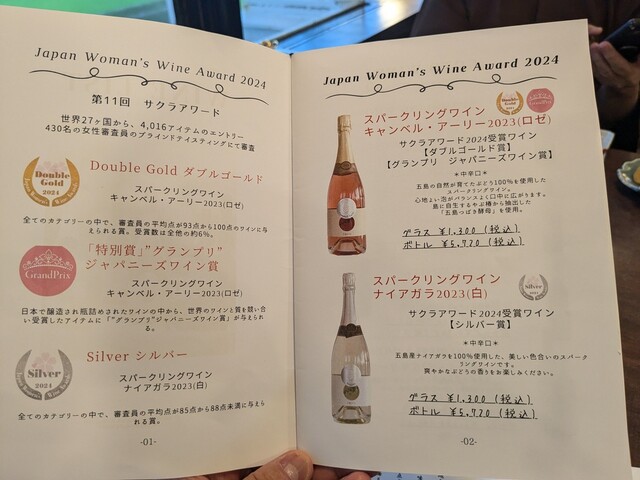 Japan Woman's Wine Award 2024
第11回 サクラアワード
世界27ヶ国から、4,016アイテムのエントリー
430名の女性審査員のブラインドテイスティングにて審査
Double Gold
2024
Double Gold ダブルゴールド
スパークリングワイン
キャンベル・アーリー2023(ロゼ)
全てのカテゴリーの中で、審査員の平均点が93点から100点のワインに与
えられる賞。受賞数は全他の約6%。
GrandPrix
「特別賞」"グランプリ"
ジャパニーズワイン賞
スパークリングワイン
キャンベル・アーリー2023(ロゼ)
日本で醸造され瓶詰めされたワインの中から、世界のワインと質を競い合
い受賞したアイテムに「"グランプリ"ジャパニーズワイン賞」が与えられ
る。
Silver
2024
Silver シルバー
スパークリングワイン
ナイアガラ2023(白)
全てのカテゴリーの中で、審査員の平均点が85点から88点未満に与えら
れる賞。
-01-
Japan Woman's Wine Award 2024
スパークリングワイン
キャンベル・アーリー2023(ロゼ)
Double
Gold
GrandPrix
サクラアワード2024受賞ワイン
【ダブルゴールド賞】
【グランプリ ジャパニーズワイン賞】
*中辛口*
五島の自然が育てたぶどう100%を使用した
スパークリングワイン。
心地よい泡がバランスよく口中に広がります。
島に自生するやぶ椿から抽出した
「五島つばき酵母」を使用。
グラス ¥1,300 (税込)
ボトル ¥5,720 (税込)
スパークリングワイン
ナイアガラ2023(白)
Silver
サクラアワード2024受賞ワイン
【シルバー賞】
*中辛口*
五島産ナイアガラを100%使用した、美しい色合いのスパーク
リングワインです。
爽やかなぶどうの香りをお楽しみください。
グラス ¥1,300 (税込)
ボトル ¥5,720 (税込)
-02-